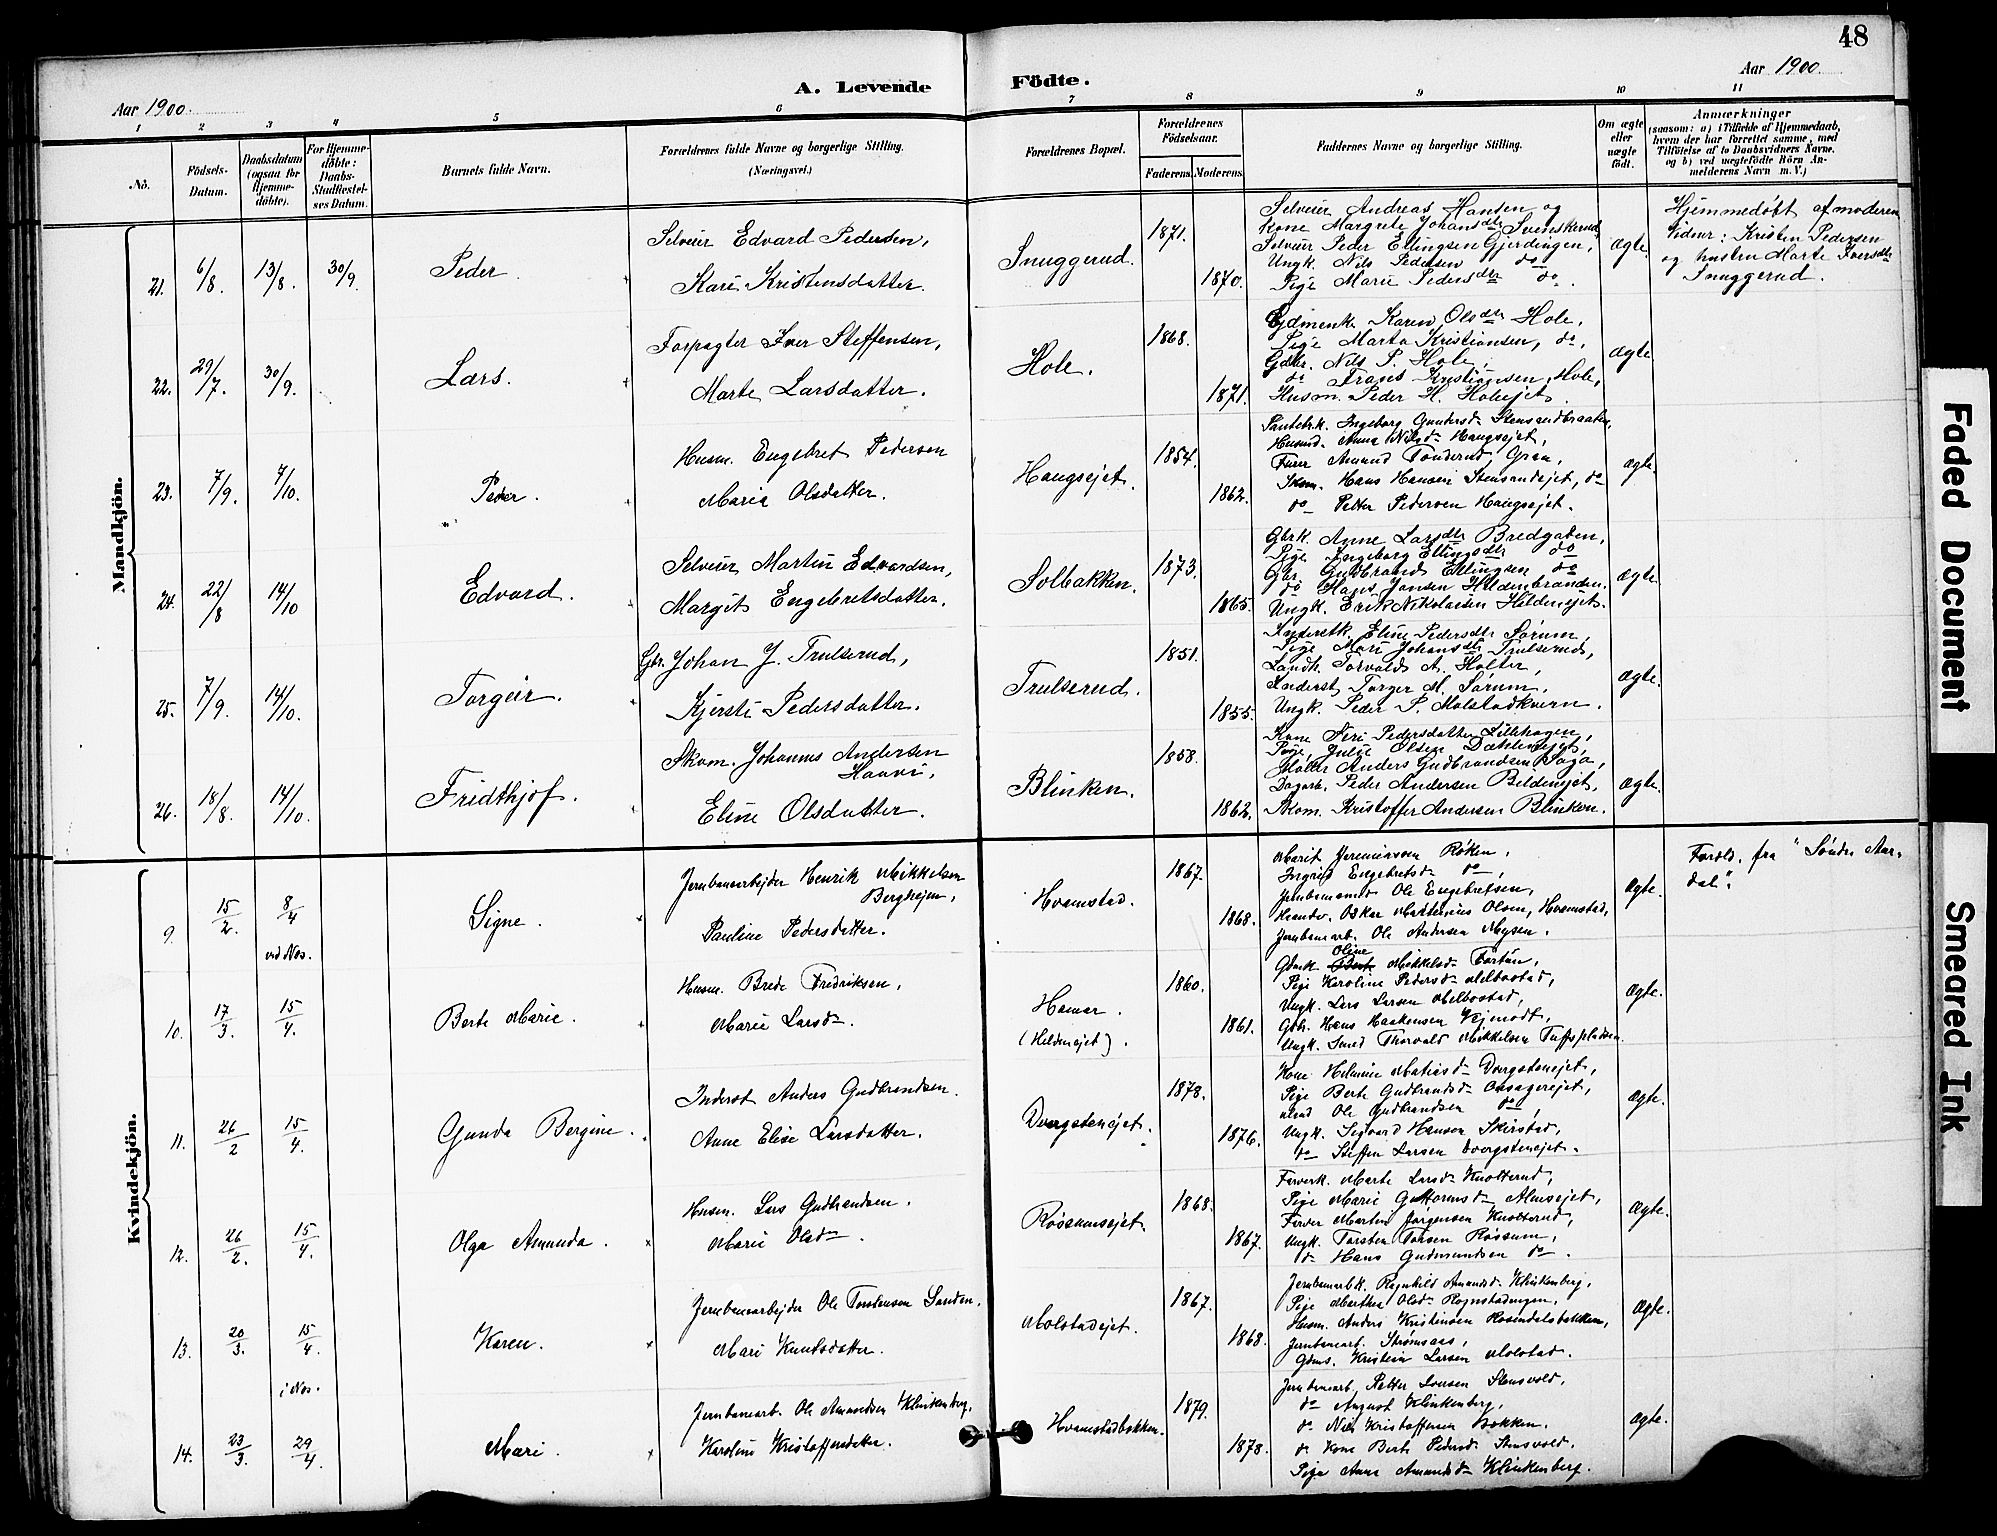 48
Aar 1900.
A. Levende Födte.
Aar 1900
1 2 3 4 5 6 7 8 9 10 11
No.
Födsels-Datum.
Daabsdatum (ogsaa for Hjemme-döbte).
For Hjemme-döbte: Daabs-Stadfæstel-ses Datum.
Barnets fulde Navn.
Forældrenes fulde Navne og borgerlige Stilling. (Næringsvei.)
Forældrenes Bopæl.
Forældrenes Födselsaar.
Faderens. Moderens.
Faddernes Navne og borgerlige Stilling.
Om ægte eller uægte födt.
Anmærkninger
(saasom: a) i Tilfælde af Hjemmedaab, hvem der har forrettet samme, med Tilföielse af to Daabsvidners Navne, og b) ved uægtefödte Börn An-melderens Navn m. V.)
Mandkjön.
21. 6/8. 13/8. 30/9. Peder
Selveier Edvard Pedersen,
Kari Kristensdatter.
Snuggerud.
1871.
1870.
Selveier Andreas Hansen og
Kone Margrete Johansdtr Svenskerud,
Selveier Peder Ellingsen Gjerdingen,
Ungk. Nils Pedersen do
Pige Marie Pedersdtr do.
Ægte.
Hjemmedøbt af moderen
Vidner: Kristen Pedersen
og hustru Marte Iversdtr
Snuggerud.
22. 29/7. 30/9. Lars.
Forpagter Iver Steffensen,
Marte Larsdatter.
Hole.
1868.
1871.
Karen Olsdtr Hole,
Pige Marta Kristiansen, do,
Gdbr. Nils P. Hole,
do Frans Kristiansen Hole,
Husm. Peder H. Holeejet.
Ægte
23. 7/9. 7/10. Peder.
Husm. Engebret Pedersen
Marie Olsdatter.
Haugsejet.
1854.
1862.
Ingeborg Gundersd Stensrudbraaten,
Anna Nilsd Haugsejet,
Farver Amund Tønderud, Gran,
Hans Hansen Stensrudejet, do
do Petter Pedersen Haugsejet.
Ægte.
24. 22/8 14/10 Edvard.
Selveier Martin Edvardsen,
Margit Engebretsdatter.
Solbakken.
1873.
1865.
Gbrk. Anne Larsdtr Bredgaten,
Pige Ingeborg Ellingsdtr do
Gbr. Gudbrand Ellingsen do
do Hans Jansen Heldenbranden.
Ungk. Erik Nikolaisen Heldenejet.
Ægte.
25. 7/9. 14/10. Torgeir.
Gbr. Johan J. Trulserud,
Kjersti Pedersdatter.
Trulserud.
1851.
1855.
Inderstk. Eline Pedersdtr Sørum,
Pige Mari Johansdtr Trulserud,
Landh. Torvald A. Holter,
Inderst Torger M. Sørum,
Ungk. Peder P. Molstadkvern.
Ægte.
26. 18/8. 14/10. Fridthjof.
Skom. Johannes Andersen
Haavi,
Eline Olsdatter.
Blinken.
1858.
1862.
Kone Siri Pedersdatter Lillehagen,
Pige Julie Olsen Dæhlenejet,
Møller Anders Gudbrandsen Saga,
Dagarb. Peder Andersen Beldenejet,
Skom. Kristoffer Andersen Blinken.
Ægte.
Kvindekjön.
9. 15/2. 8/4 Signe.
ved Nos.
Jernbanearbejder Henrik Mikkelsen
Berghejem,
Pauline Pedersdatter.
Hvamstad.
1867.
1868.
Marit Jeremiassen Røken,
Ingrid Engebretsd do,
Jernbanemand Ole Engebretsen,
Oskar Matheus Olsen, Hvamstad,
Jernbanearb. Ole Andersen Mysen.
Ægte.
Foræld. fra "Søndre Aur-
dal".
10. 17/3. 15/4. Berte Marie.
Husm. Brede Fredriksen,
Marie Larsd.
Hamar.
(Heldenejet).
1860.
1861.
Oline
Mikkelsd
Pige Karoline Pedersd Melbostad,
Ungk. Lars Larsen Melbostad,
Gdbr. Hans Haakensen Vejmodt,
Ungk. Smed Thorvald Mikkelsen Tuftspladsen.
Ægte.
11. 26/2 15/4. Gunda Bergine.
Inderst Anders Gudbrandsen.
Anne Elise Larsdatter.
Dvergstenejet.
1878.
1876.
Kone Helmine Matiasd Dvergstenejet,
Pige Berte Gudbrandsd Onsagerejet,
Ole Gudbrandsen do
Ungk. Sigvard Hansen Skirstad,
do Steffen Larsen Dvergstenejet.
Ægte.
12. 26/2. 15/4. Olga Amunda.
Husm. Lars Gudbrandsen.
Marie Olsd.
Røssumsejet.
1868.
1867.
Farverk. Marte Larsd Knotterud,
Pige Marie Guttormsd Almsejet,
Farver Martin Jørgensen Knotterud,
Ungk. Torsten Torsen Røssum,
do Hans Gudmundsen do.
Ægte.
13. 20/3. 15/4. Karen.
i Nos.
Jernbanearbejder Ole Torstensen Sanden,
Mari Knutsdatter.
Molstadejet.
1867.
1868.
Jernbanearbk. Ragnhild Amundsd Klinkenberg,
Pige Marthea Olsd Rognstadengen,
Husm. Anders Kristiansen Rosendalsbakken,
Jernbanearb. Strømsaas,
Kristian Larsen Molstad.
Ægte.
14. 23/3. 29/4. Mari.
Jernbanearb. Ole Amundsen Klinkenberg,
Karoline Kristoffersdatter.
Hvamstadbakken.
1879.
1878.
Jernbanearb. Petter Iversen Stensvold,
do August Klinkenberg,
do Nils Kristoffersen Bakken.
do Kone Berte Pedersd Stensvold.
Pige Anne Amundsd Klinkenberg.
Ægte.
Faded Document
Smeared Ink